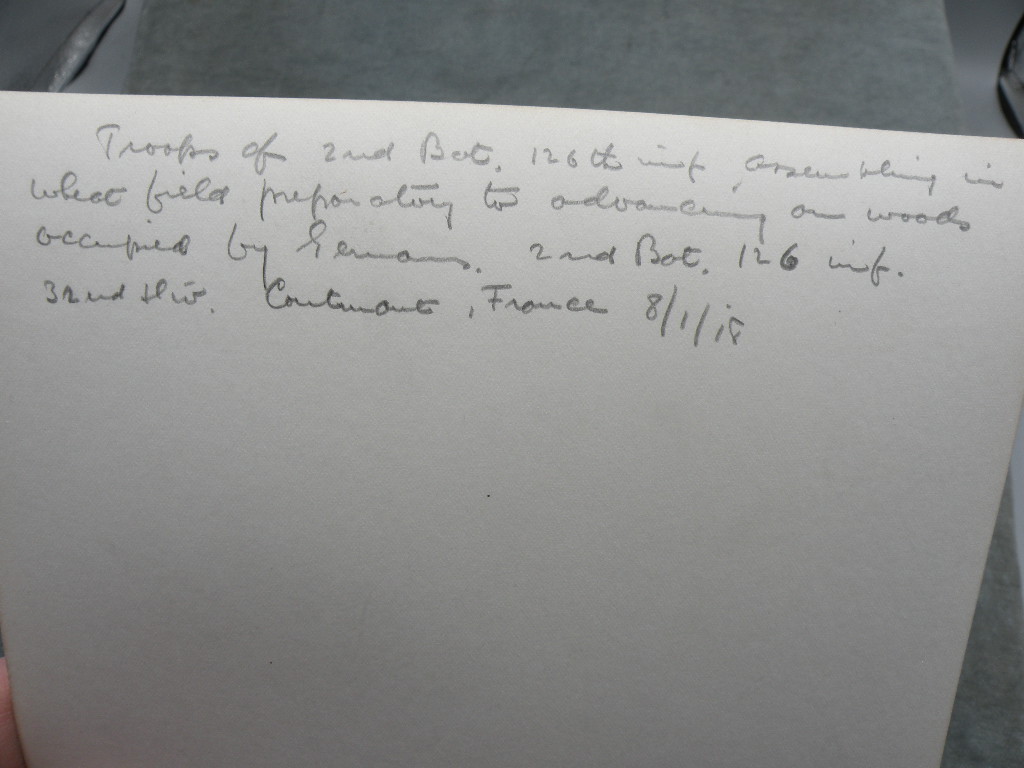 Troops of 2nd Bat. 126th inf. assembling in
wheat field preparatory to advancing on woods
occupied by Germans. 2nd Bat. 126 inf.
32nd Div. Courmont, France 8/1/18